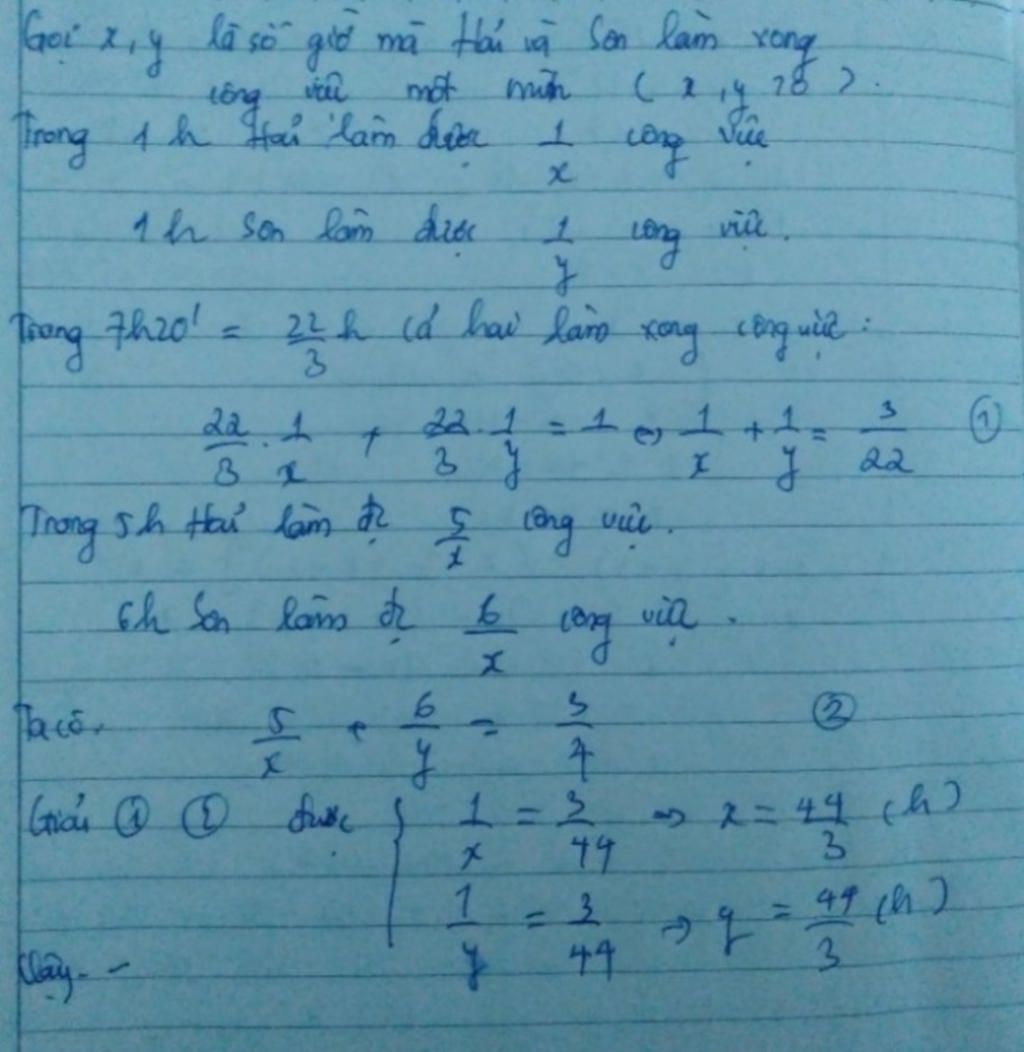 Gọi x, y là số giờ mà Hải và Sơn làm xong
công việc một mình ( x, y > 0 ).
Trong 1h Hải làm được 1/x công việc
1h Sơn làm được 1/y công việc.
Trong 7h20' = 22/3 h cả hai làm xong công việc :
22/3 . 1/x + 22/3 . 1/y = 1 ⇔ 1/x + 1/y = 3/22 ①
Trong 5h Hải làm đc 5/x công việc.
6h Sơn làm đc 6/x công việc.
Ta có. 5/x + 6/y = 3/4 ②
Giải ① ② được { 1/x = 3/44 => x = 44/3 (h)
1/y = 3/44 => y = 44/3 (h)
Vậy. -